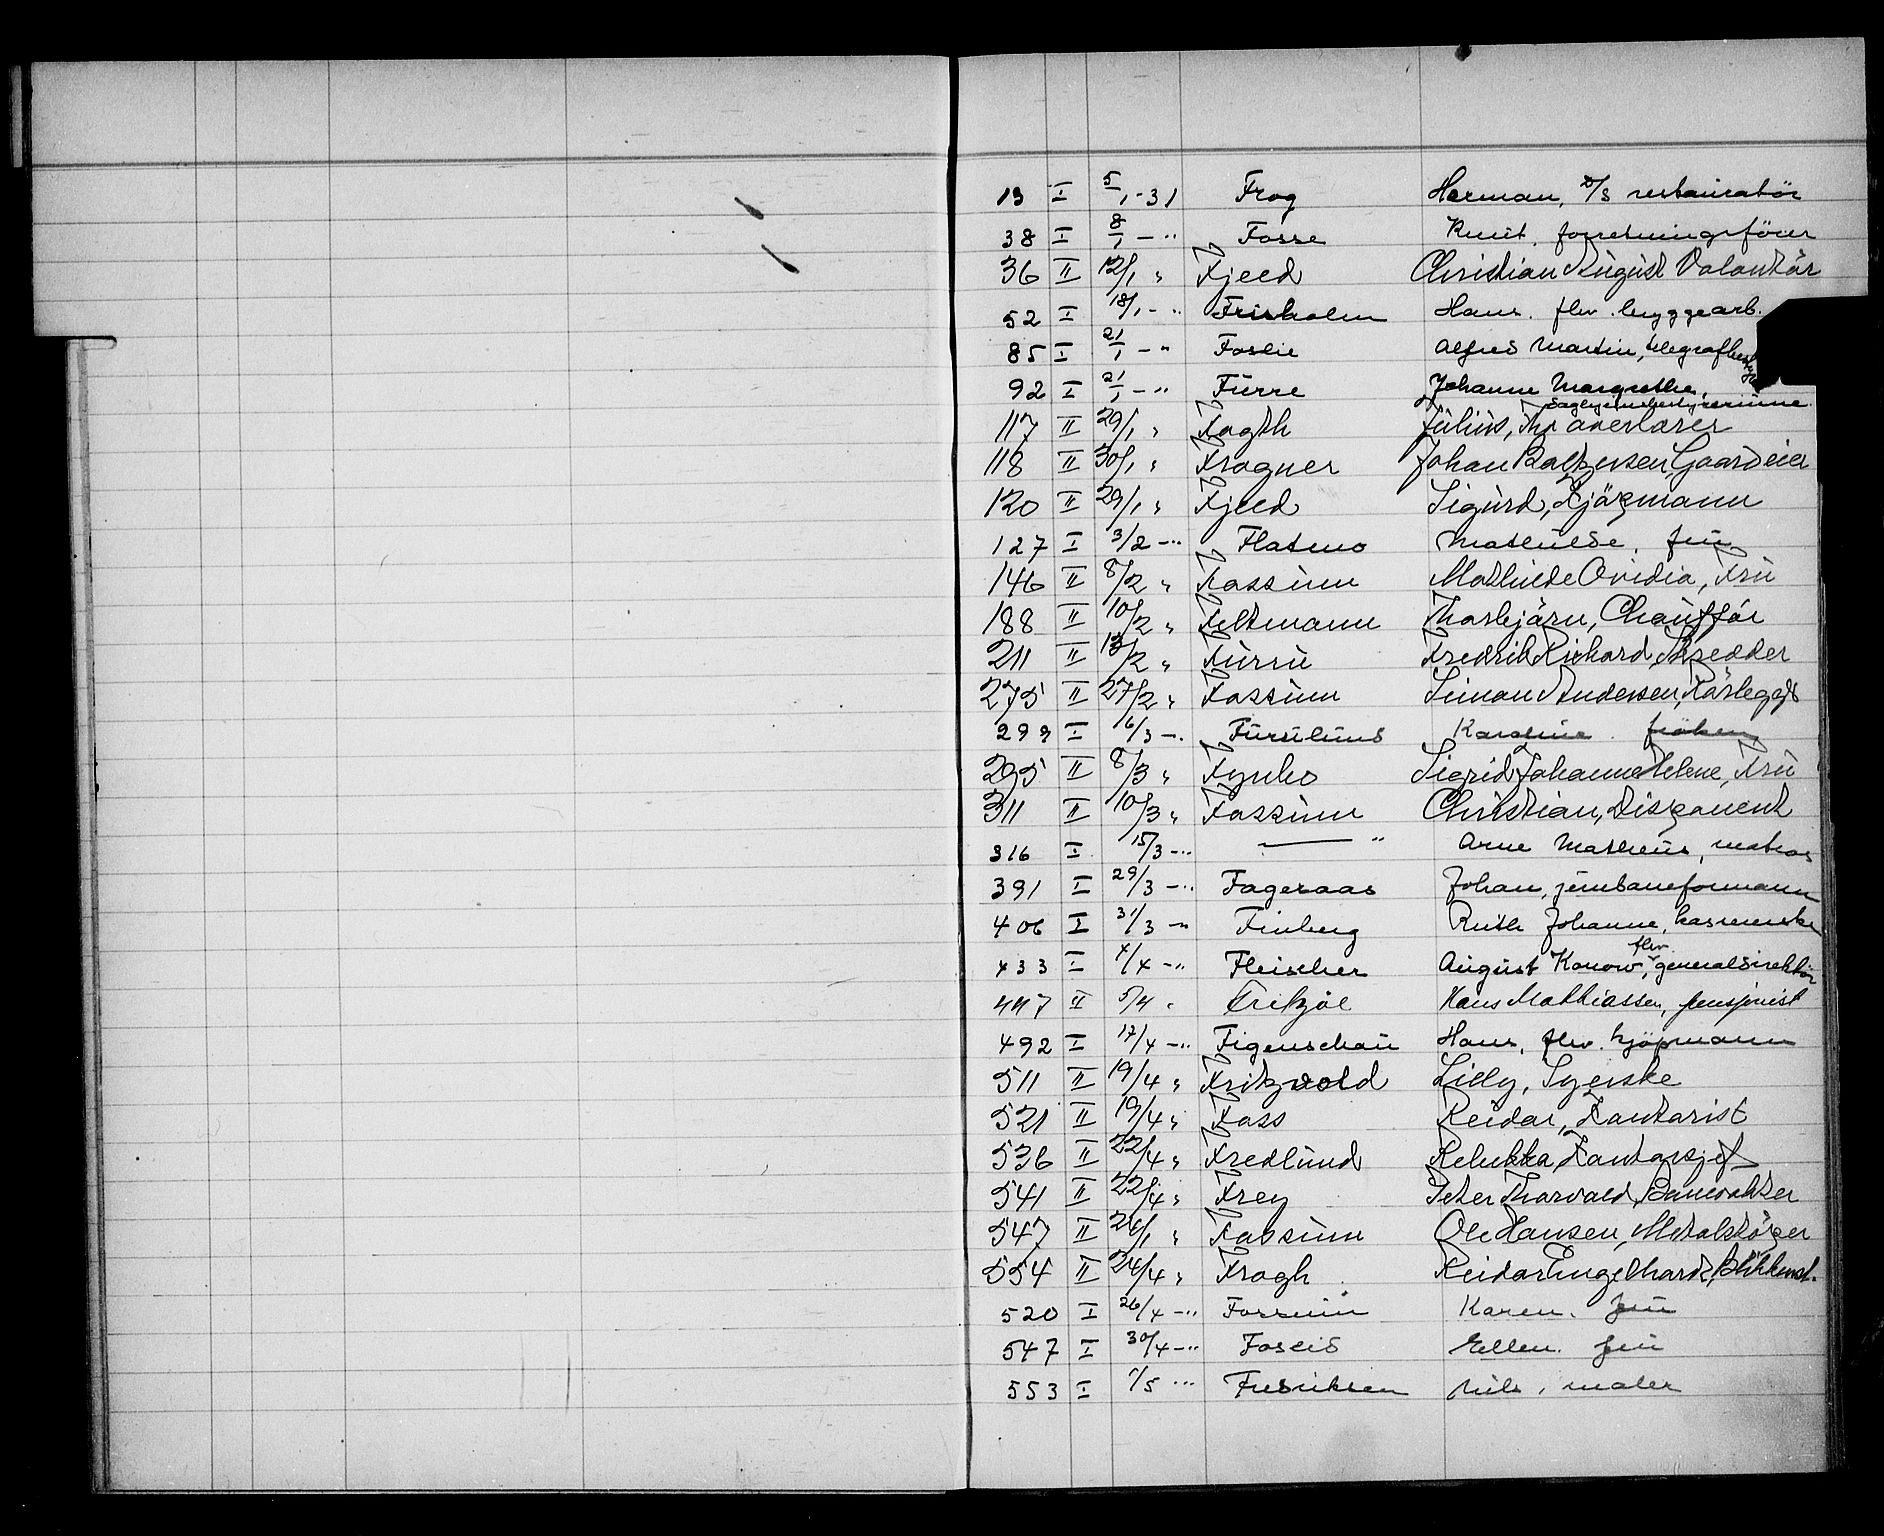 13 I 5/1-31 Frog Herman, D/S restauratør
38 I 8/1 - " Fosse Knut, forretningsfører
36 II 12/1 " Fjeld Christian August Volontør
52 I 18/1 - " Frisholm Hans. flw. bryggearb.
85 I 21/1 - " Foslie Alfred Martin, telegrafbestyr
92 I 21/1 - " Furre Johanne Margrethe,
117 II 29/1 " Fagth Julius, Thv
118 II 30/1 " Frogner Johan Baltzersen, Gaardeier
120 II 29/1 " Fjeld Sigurd, Kjøpmann
127 I 3/2 - " Flatmo Mathilde, fru
146 II 8/2 " Fossum Mathilde Ovidia, Fru
188 II 10/2 " Feltmann Thorbjørn, Chauffør
211 II 13/2 " Furru Fredrik Rikard, Skredder
275 II 27/2 " Fossum Simon Andersen, Rørlegger
299 I 6/3 - " Furulund Karoline. frøken
295 II 8/3 " Fynbo Sigrid Johanne Helene, Fru
311 II 10/3 " Fossum Christian, Disponent
316 I 15/3 - " — " Arne Matheus, matros
391 I 29/3 - " Fageraas Johan, jernbaneformann
406 I 31/3 - " Finberg Ruth Johanne, kassererske
433 I 4/4 - " Fleischer August Konow, flw. generaldirektør
447 II 5/4 " Fritzøe Hans Mathiassen, pensjonist
492 I 17/4 - " Figenschau Hans, flw. kjøpmann
511 II 19/4 " Fritzvold Lilly, Syerske
521 II 19/4 " Foss Reidar, Kontorist
536 II 22/4 " Fredlund Rebekka, Kontorsjef
541 II 22/4 " Frey Peter Thorvald, Banevokter
547 II 24/1 " Fossum Ole Hansen, Metalstøper
554 II 24/4 " Frogh Reidar Engelhardt, Blikkensl.
520 I 26/4 - " Fossum Karen. fru
547 I 30/4 - " Foseid Ellen. fru
553 I 1/5 - " Fredriksen Nils, maler